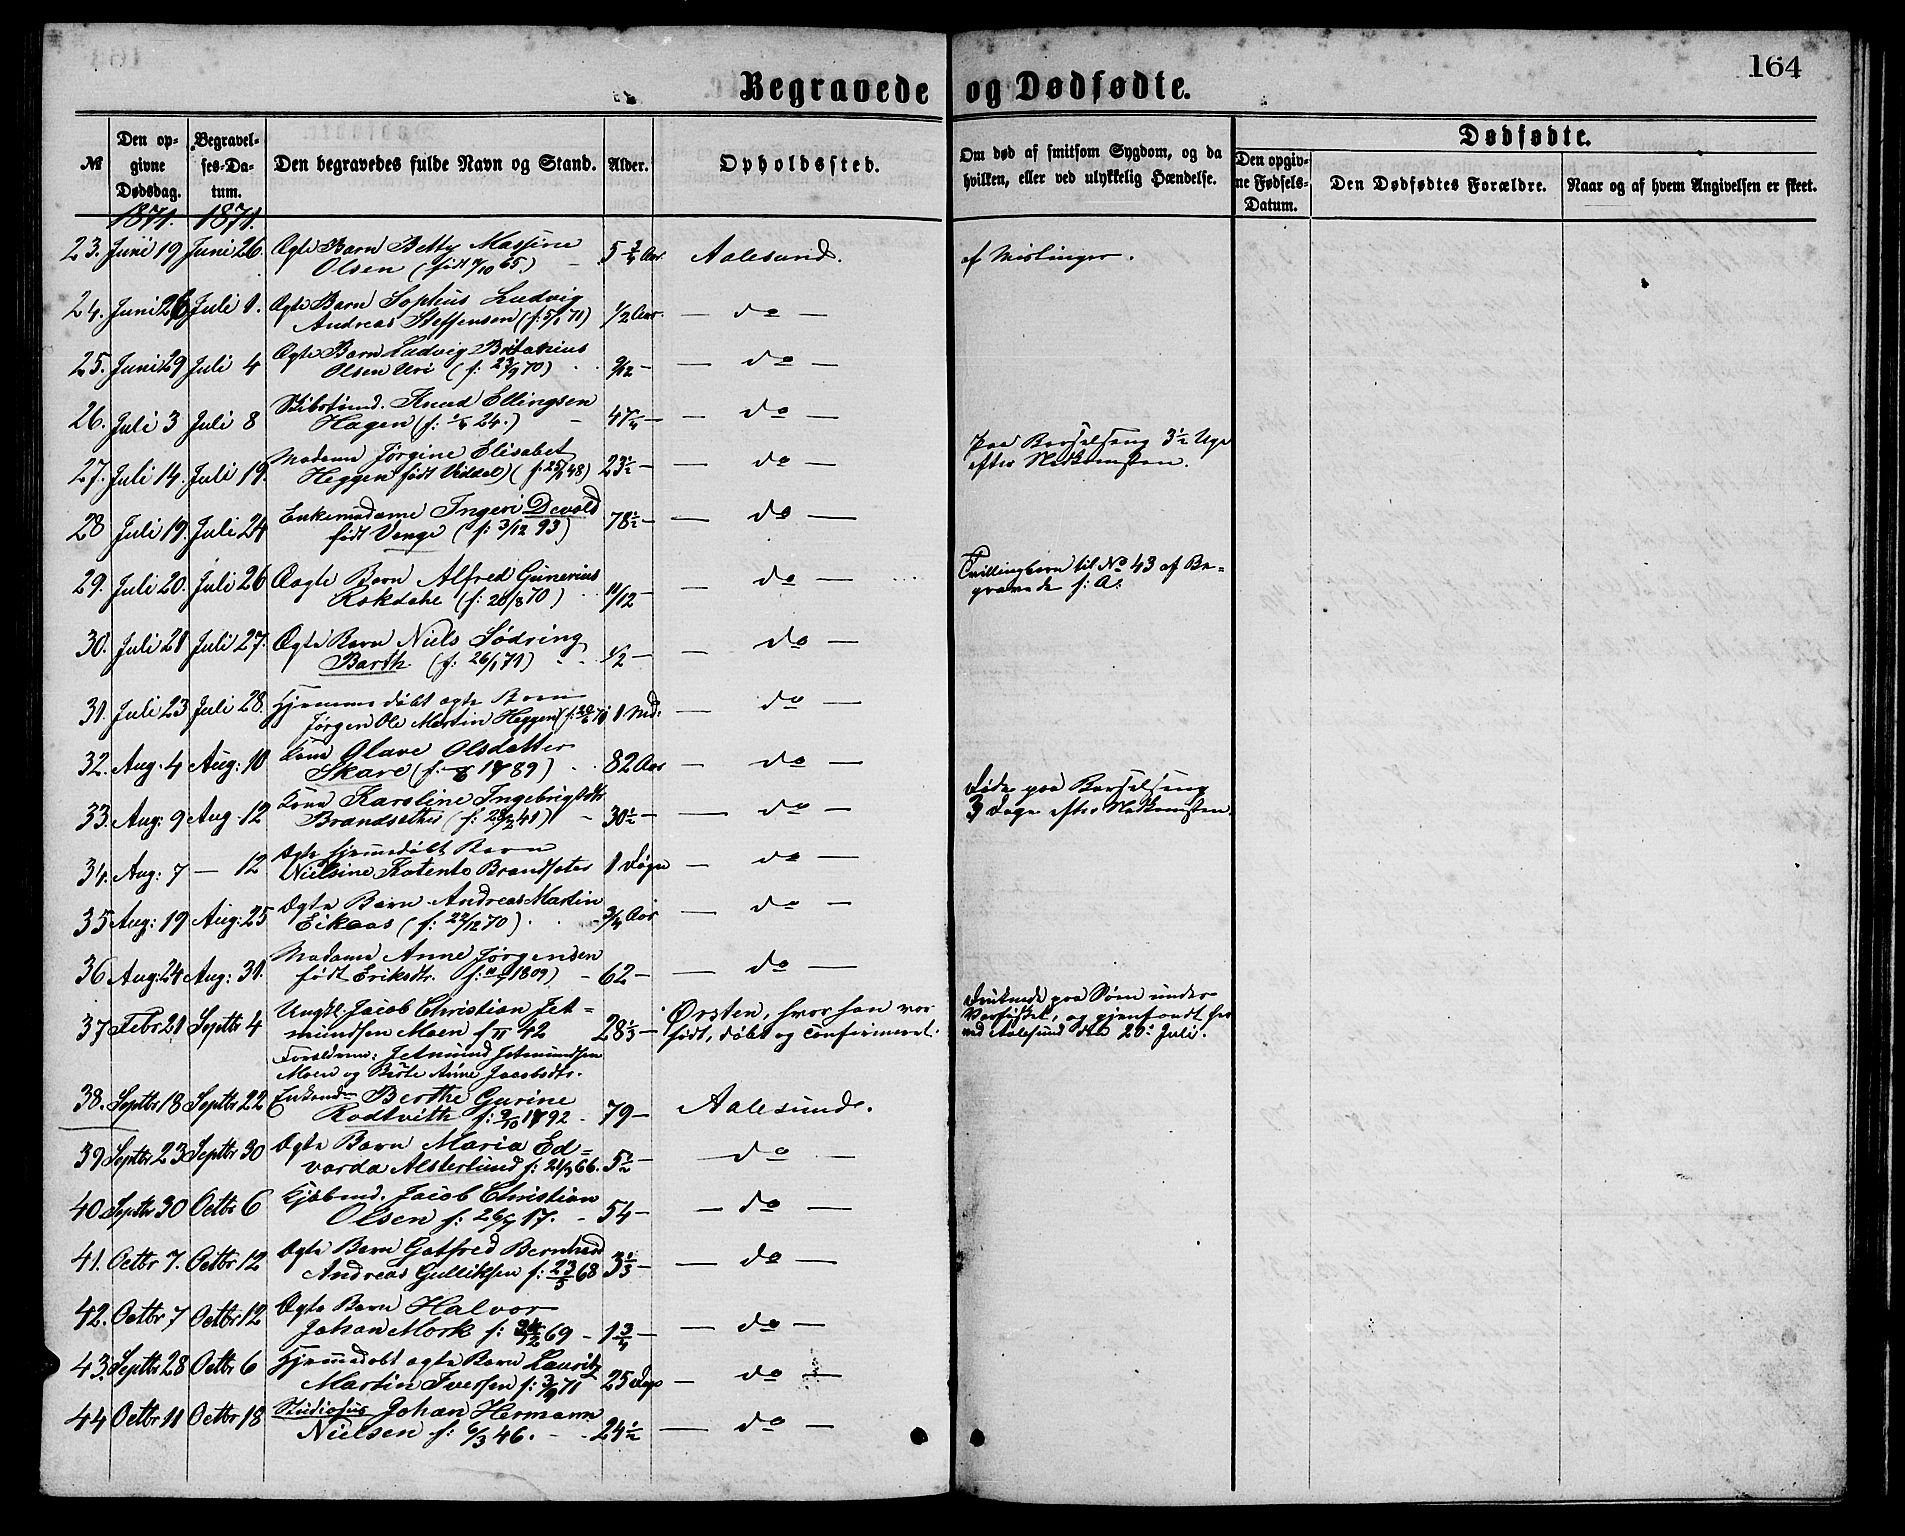 164
Begravede og Dødfødte.
№
Den opgivne Dødsdag.
Begravelses-Datum.
Den begravedes fulde Navn og Stand.
Alder.
Opholdssted.
Om død af smitsom Sygdom, og da hvilken, eller ved ulykkelig Hændelse.
Dødfødte.
Den opgivne Fødsels-Datum.
Den Dødfødtes Forældre.
Naar og af hvem Angivelsen er skeet.
1871. 1871.
23. Juni 19 Juni 26. Ægte Barn Betty Massine 5 3/4 Aar Aalesund. af Meslinger.
Olsen (født 7/10 65.)
24. Juni 26 Juli 1. Ægte Barn Sophus Ludvig
Andreas Steffensen (f: 5/1 71) 1/2 Aar. — do —
25. Juni 29 Juli 4 Ægte Barn Ludvig
Olsen Uri (f: 23/9 70) 9/12 — — do —
26. Juli 3 Juli 8 Skibstømd. Knud Ellingsen
Hagen (f: 24.) 47 — — do —
27. Juli 14. Juli 19. Madame Jørgine Elisabet paa Barselseng 3½ Uge
Heggen født Viddal) (f: 48) 23½ — — do — efter Nedkomsten.
28 Juli 19. Juli 24 Enkemadame Ingeri Devold
født Venge (f: 3/12 93) 78½ — — do —
29. Juli 20. Juli 26 Ægte Barn Alfred Gunerius Tvillingbarn til No 43 af Be-
Rokdahl (f: 20/8 70) 11/12 — — do — gravede f: A:
30. Juli 21 Juli 27. Ægte Barn Niels Sødring
Barth (f: 26/1 71) 1/2 — — do —
31. Juli 23 Juli 28. Hjemmedøbt ægte Barn
Jørgen Ole Martin Heggen 1 Md: — do —
32. Aug: 4 Aug: 10 Kone Olave Olsdatter
Skare (f: 1789) 82 Aar — do —
33. Aug: 9 Aug: 12 Kone Karoline Ingebrigtsdtr døde paa Barselseng
Brandsether (f: 28/2 41) 30½ — — do — 3 Dage efter Nedkomsten.
34. Aug: 7 — 12 Ægte hjemmedøbt Barn
Nielsine Brandsæter 1 Døgn — do —
35 Aug: 19 Aug: 25 Ægte Barn Andreas Martin
Eikaas (f: 22/12 70) 3/4 Aar — do —
36 Aug: 24 Aug: 31. Madame Anne Jørgensen
født Eriksdtr. 1809) 62 — — do —
37. Febr 21 Septbr 4 Ungk: Jacob Christian Jet- Ørsten, hvor han var druknede paa Søen under
mundsen Moen 42 28⅓ — født, døbt og confirmeret. Veirfisket, og gjenfandt her
Forældrene: Jetmund Jetmundsen ved Aalesund den 20: Juli.
Moen og Birte Anne Jacobsdtr.
38. Septbr 18 Septbr 22 Enkemd. Berthe Gurine
Rødtvith f: 9/10 1792 79 — Aalesund.
39 Septbr 23 Septbr 30 Ægte Barn Maria Ed-
varda Alsterlund 66. 5½ — — do —
40. Septbr 30 Octbr 6 Kjøbmd. Jacob Christian
Olsen f: 17. 54 — — do —
41. Octbr 7. Octbr 12 Ægte Barn Gotfred Bernhard
Andreas Gulliksen f: 23/5 68 3⅓ — — do —
42. Octbr 7 Octbr 12 Ægte Barn Halvor
Johan Mork f: 69 — 1¾ — — do —
43. Septbr 28 Octbr 6 Hjemmedøbt ægte Barn Lauritz
Martin Iversen f: 3/9 71 25 Dage — do —
44 Octbr 11 Octbr 18 Studiosus Johan Hermann
Nielsen f: 6/3 46. 24½ — do —